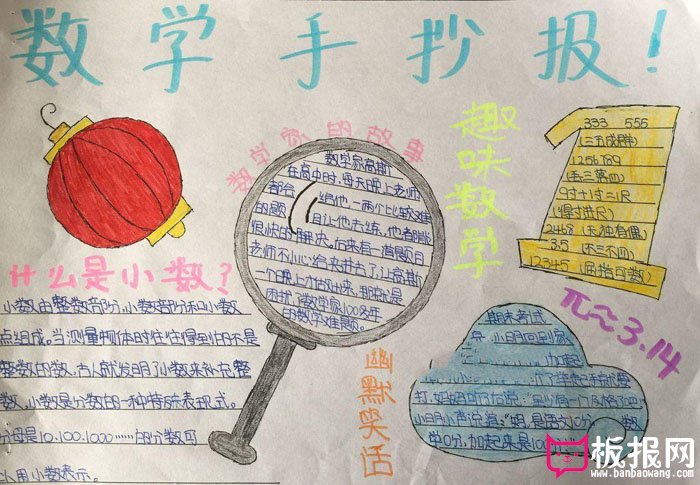 数学手抄报!
数学家的故事
数学家高斯
在高中时,每天晚上老师
都会给他一两个比较难
的题目让他去练,他都能
很快的解决。后来有一道题目
老师不小心给夹进去了,让高斯
一个晚上才做出来,那就是
困扰了数学家100多年
的数学难题。
趣味数学
333 555
(三五成群)
1256789
(丢三落四)
9寸+1寸=1尺
(得寸进尺)
2468(无独有偶)
3.5(不三不四)
12345(屈指可数)
π≈3.14
什么是小数?
小数由整数部分,小数部分和小数
点组成。当测量物体时往往得到的不是
整数的数,古人就发明了小数来补充整
数,小数是分数的一种特殊表现式。
分母是10.100.1000……的分数可
以用小数表示。
幽默笑话
期末考试
小明回到家
打,妈妈
小明小声说道:"妈,是语文10分 数
学0分,加起来是100分
板报网
www.banbaowang.com